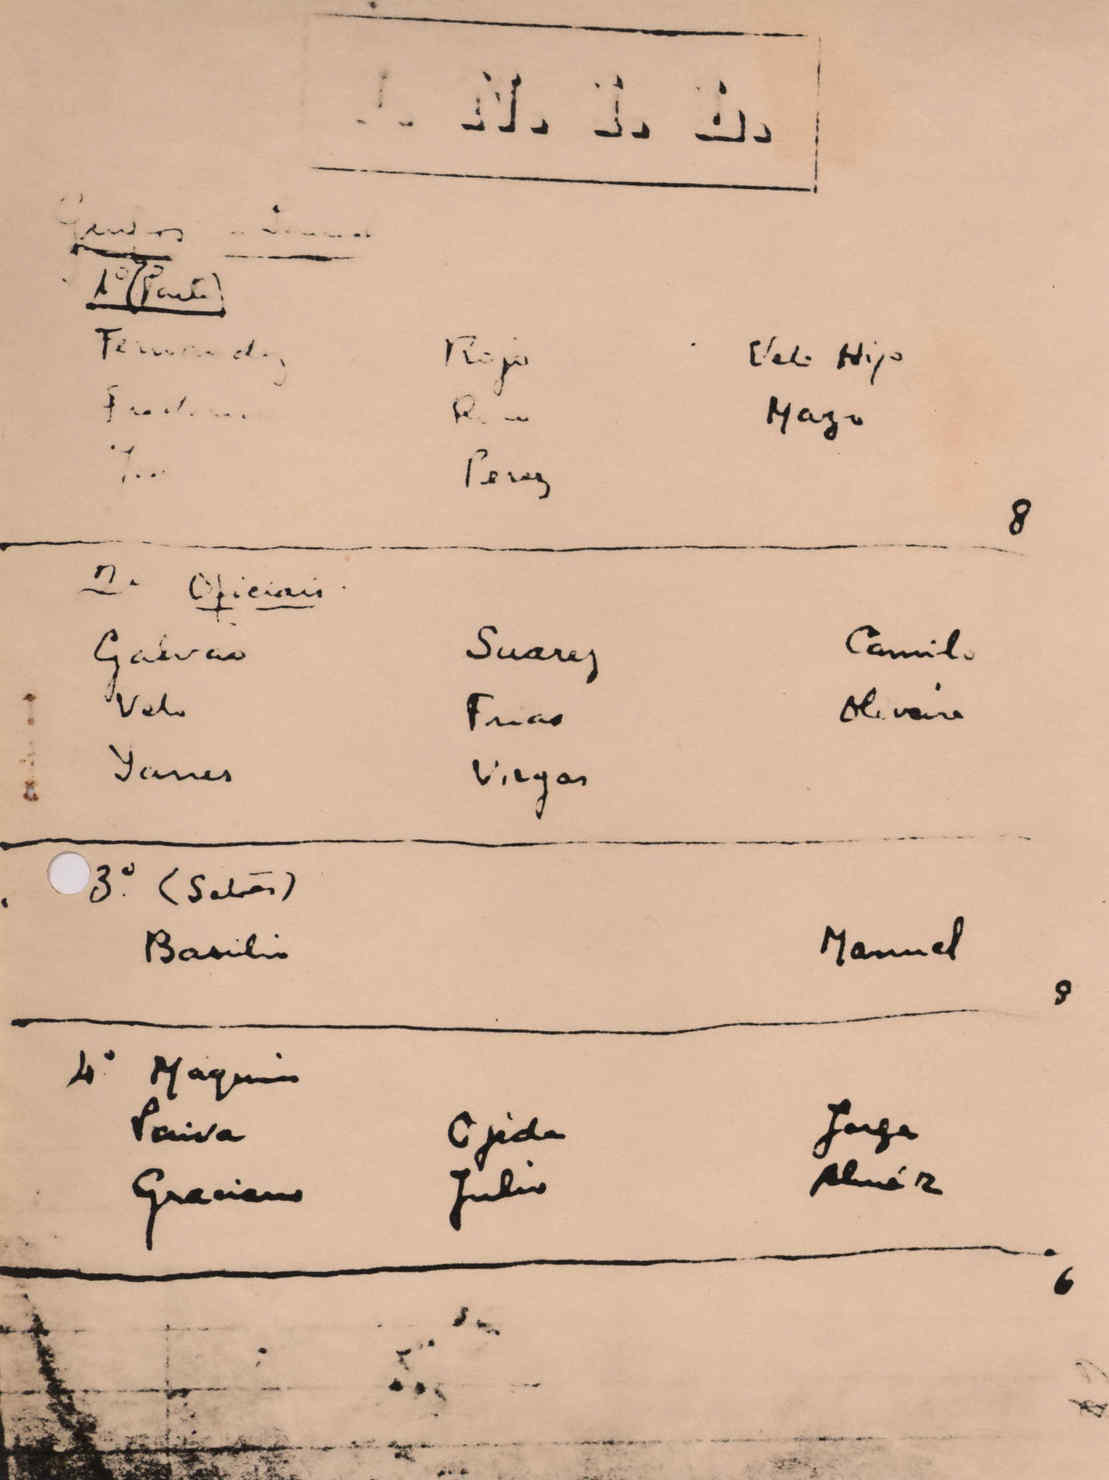 . N. I. L.
Grupos
1º (Ponte)
Fernandez Rojo Velo Hijo
Mazo
Perez
8
2º Oficiais
Galvao Suarez Camilo
Velo Frias Oliveira
Yanes Virgas
3º (Salões)
Basilio Manuel
9
4º Maquinas
Paiva Ojeda Jorge
Graciano Julio
6